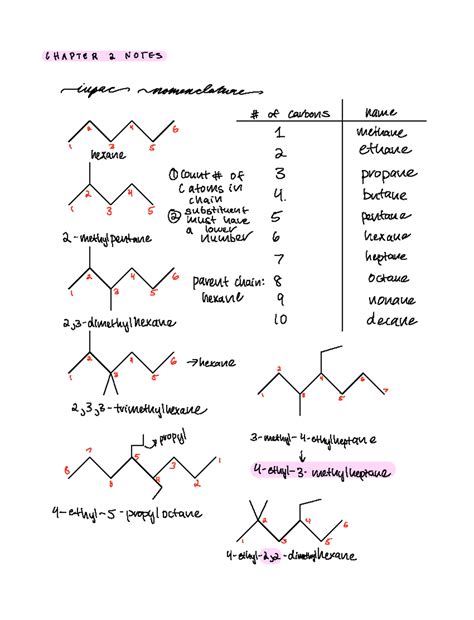 CHAPTER 2 NOTES
iupac nomenclature
# of carbons name
1 methane
2 ethane
3 propane
4. butane
5 pentane
6 hexane
7 heptane
8 octane
9 nonane
10 decane
1 2 3 5 6
hexane
① count # of
C atoms in
chain
② substituent
must have
a lower
number
1 2 3 4 5
2-methylpentane
parent chain:
hexane
1 2 3 4 5 6
2,3-dimethylhexane
1 2 3 4 5 6
→hexane
2,3,3-trimethylhexane
1 2 3 4 5 6 7
3-methyl-4-ethylheptane
↓
4-ethyl-3-methylheptane
→propyl
8 7 6 5 4 3 2 1
4-ethyl-5-propyloctane
1 2 3 4 5 6
4-ethyl-2,2-dimethylhexane